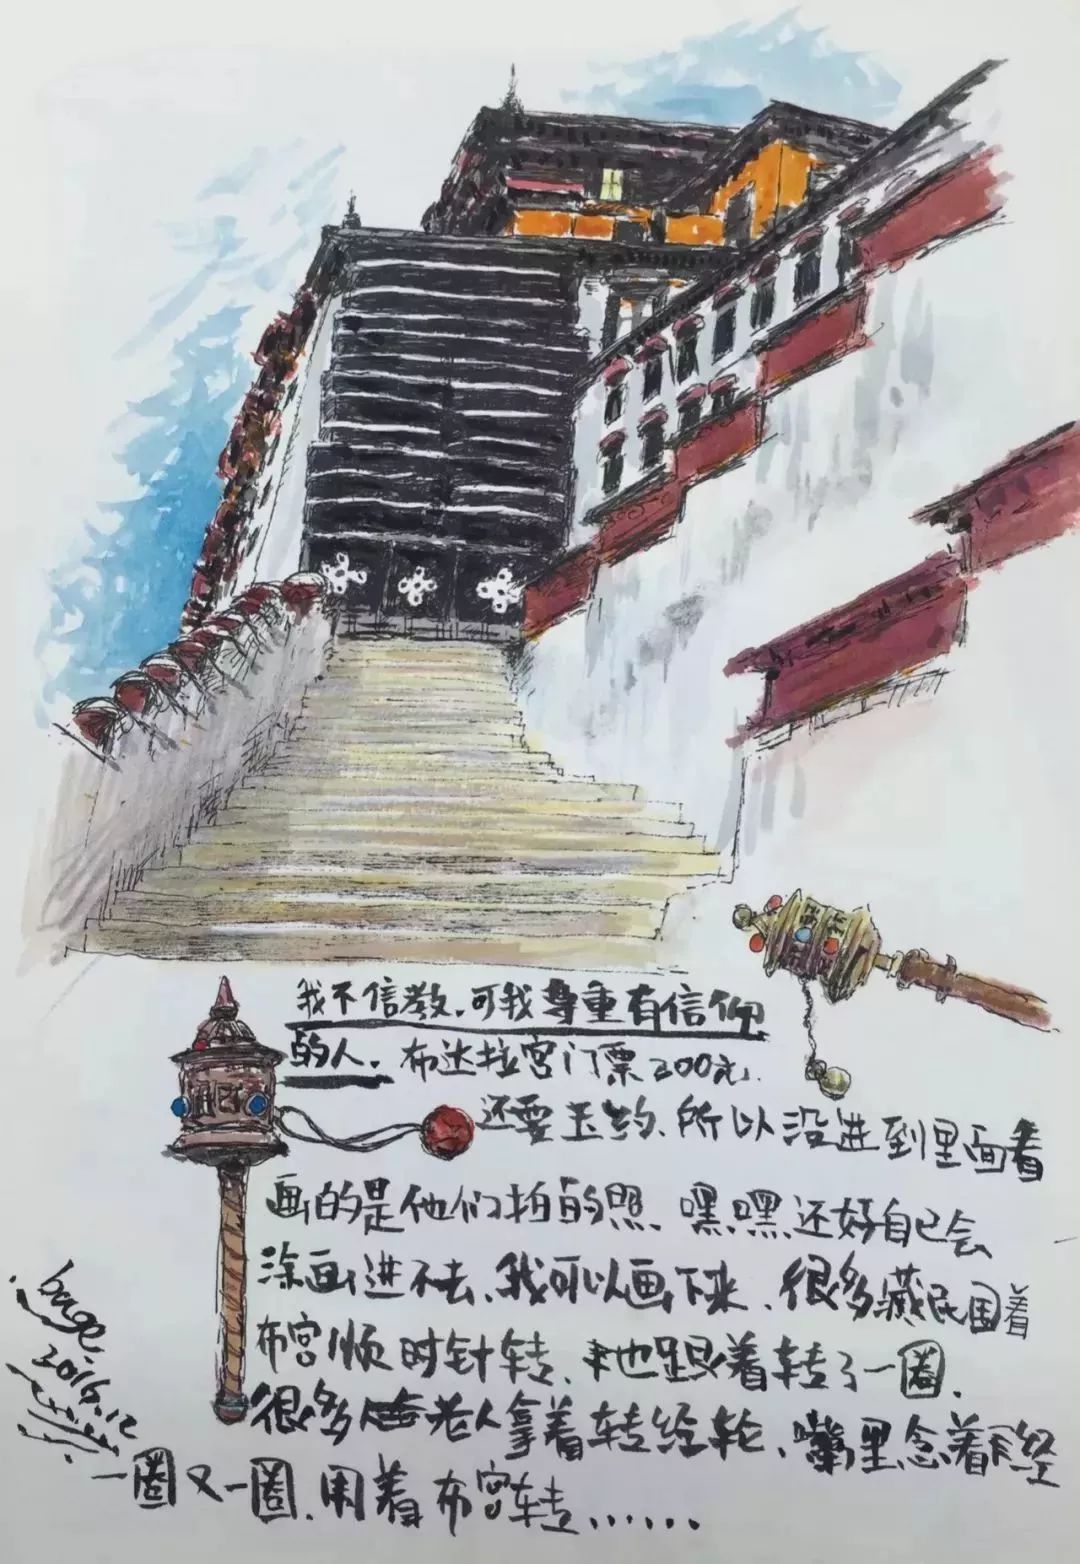 我不信教.可我尊重有信仰
的人.布达拉宫门票200元.
还要预约、所以没进到里面看
画的是他们拍的照、嘿嘿还好自己会
涂画进不去、我可以画下来、很多藏民围着
布宫顺时针转、也跟着转了一圈.
很多老人拿着转经轮、嘴里念着经
一圈又一圈.围着布宫转......
2016.12